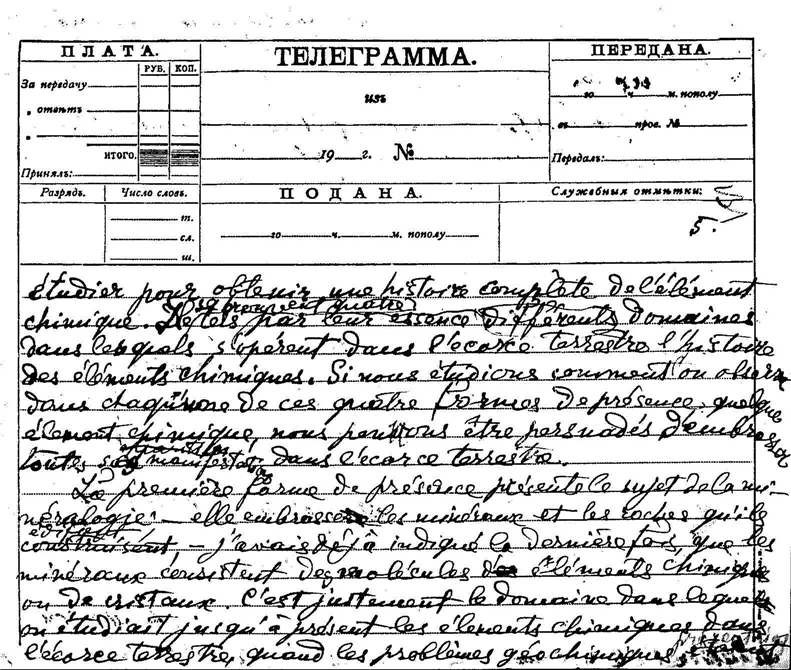 ПЛАТА.
РУБ. КОП.
За передачу
„ отвѣтъ
„
ИТОГО.
Принялъ:
ТЕЛЕГРАММА.
изъ
19 г. №
ПЕРЕДАНА.
го ч. м. пополу
въ пров. №
Передалъ:
Разрядъ.
Число словъ.
т.
сл.
ш.
ПОДАНА.
го ч. м. пополу
Служебныя отмѣтки:
5.
étudier pour obtenir une histoire complète de l'élément
chimique. par leur essence différents domaines
dans lesquels s'opèrent dans l'écorce terrestre l'histoire
des éléments chimiques. Si nous étudions comment on observe
dans chaqune de ces quatre formes de présence quelque
élément chimique, nous pouvons être persuadés d'embrasser
toutes dans l'écorce terrestre.
La première forme de présence présente le sujet de la mi-
néralogie – elle embrosse les minéraux et les roches qu'ils
construisent, – j'avais déjà indiqué la dernière fois, que les
minéraux consistent des molécules des éléments chimiques
ou de cristaux. C'est justement le domaine dans lequel
on étudiait jusqu'à présent les éléments chimiques dans
l'écorce terrestre, quand les problèmes géochimiques